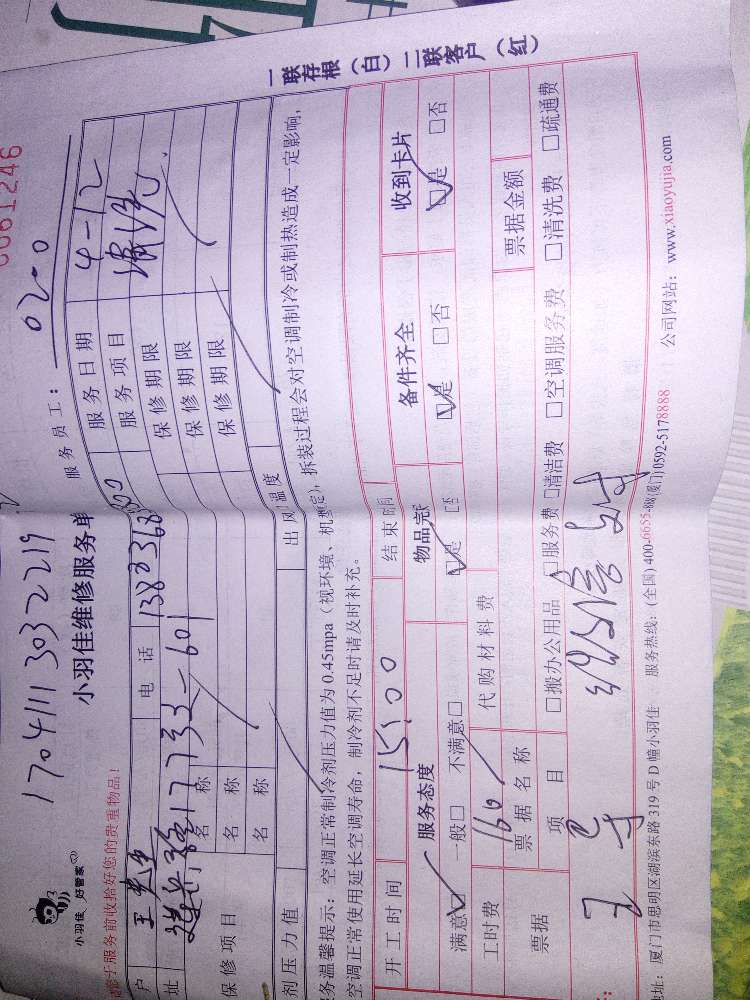 一联存根（白）二联客户（红）
0061246
1704111303 2219
服务员工：0200
小羽佳 好管家
小羽佳维修服务单
部于服务前收拾好您的贵重物品！
户 王先生 电话 服务日期 4-12
址 服务项目 清洗
保修项目 名称 保修期限
名称 保修期限
名称 保修期限
剂压力值 出风温度
务温馨提示：空调正常制冷剂压力值为0.45mpa（视环境、机型定），拆装过程会对空调制冷或制热造成一定影响，
空调正常使用延长空调寿命，制冷剂不足时请及时补充。
开工时间 15:00 结束时间
服务态度 物品完 备件齐全 收到卡片
满意 一般□ 不满意□ 是 □否 是 □否 是 □否
工时费 160 代购材料费
票据 票据名称 票据金额
项目 □搬办公用品 □服务费 □清洁费 □空调服务费 □清洗费 □疏通费
址：厦门市思明区湖滨东路319号D幢小羽佳 服务热线：(全国)400-6655-888(厦门)0592-5178888 公司网站：www.xiaoyujia.com